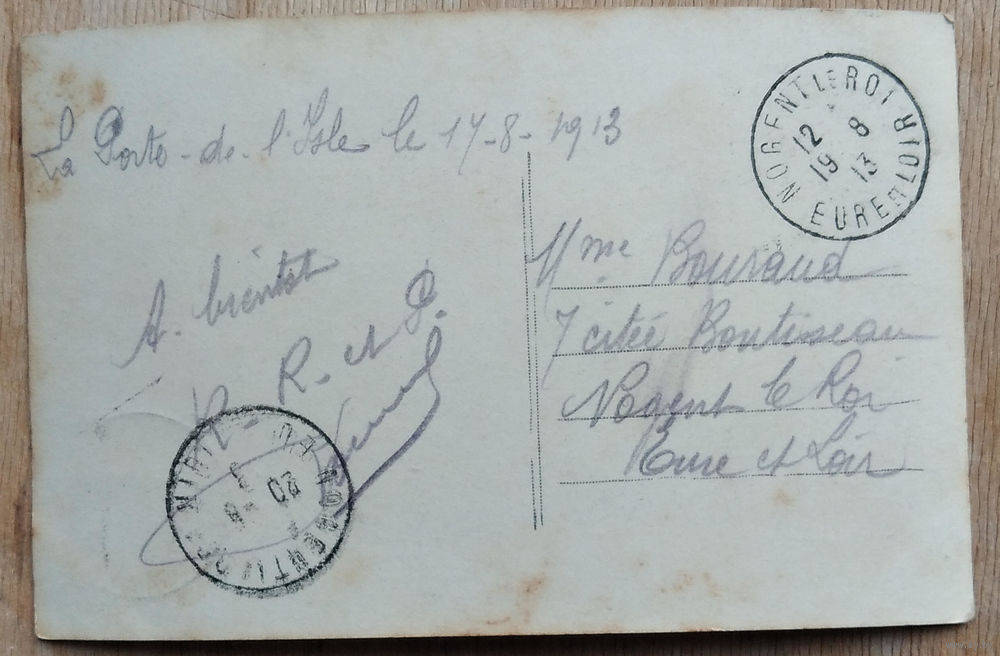 La Porte-de-l'Isle le 17-8-1913
A. bientot
R. R. et P.
Mme Bouraud
7 citeé Boutiseau
Nogent le Roi
Eure et Loir
NOGENT LE ROI
12 8
19 13
EURE ET LOIR